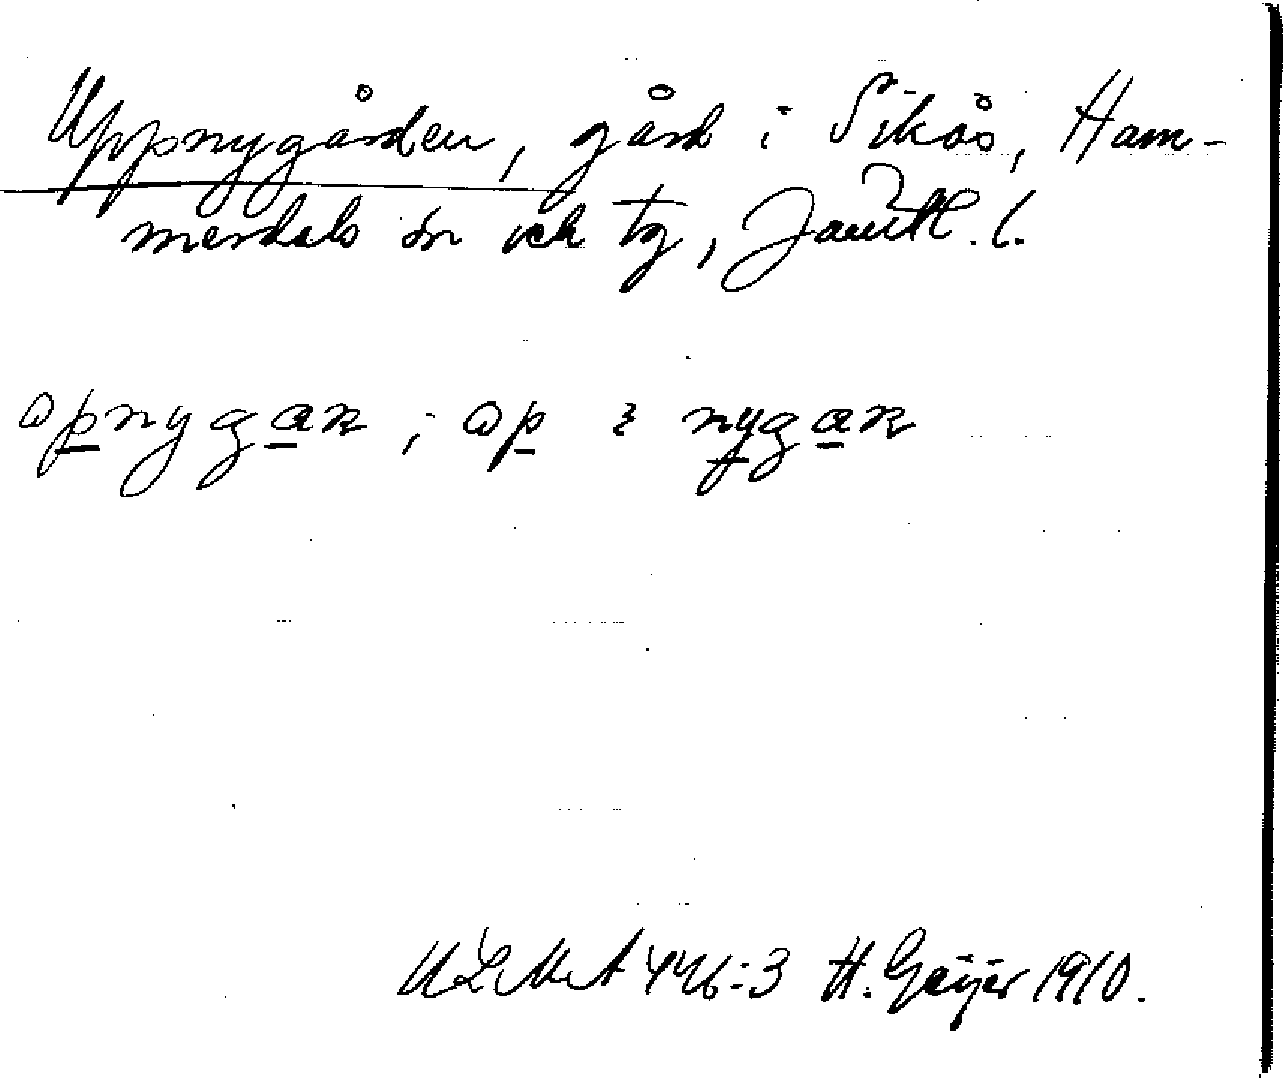 Uppnygården, gård i Sikås, Ham-
merdals sn och tg, Jämtl. l.
opnygan ; op : nygan
ULMA 446:3 H. Geijer 1910.